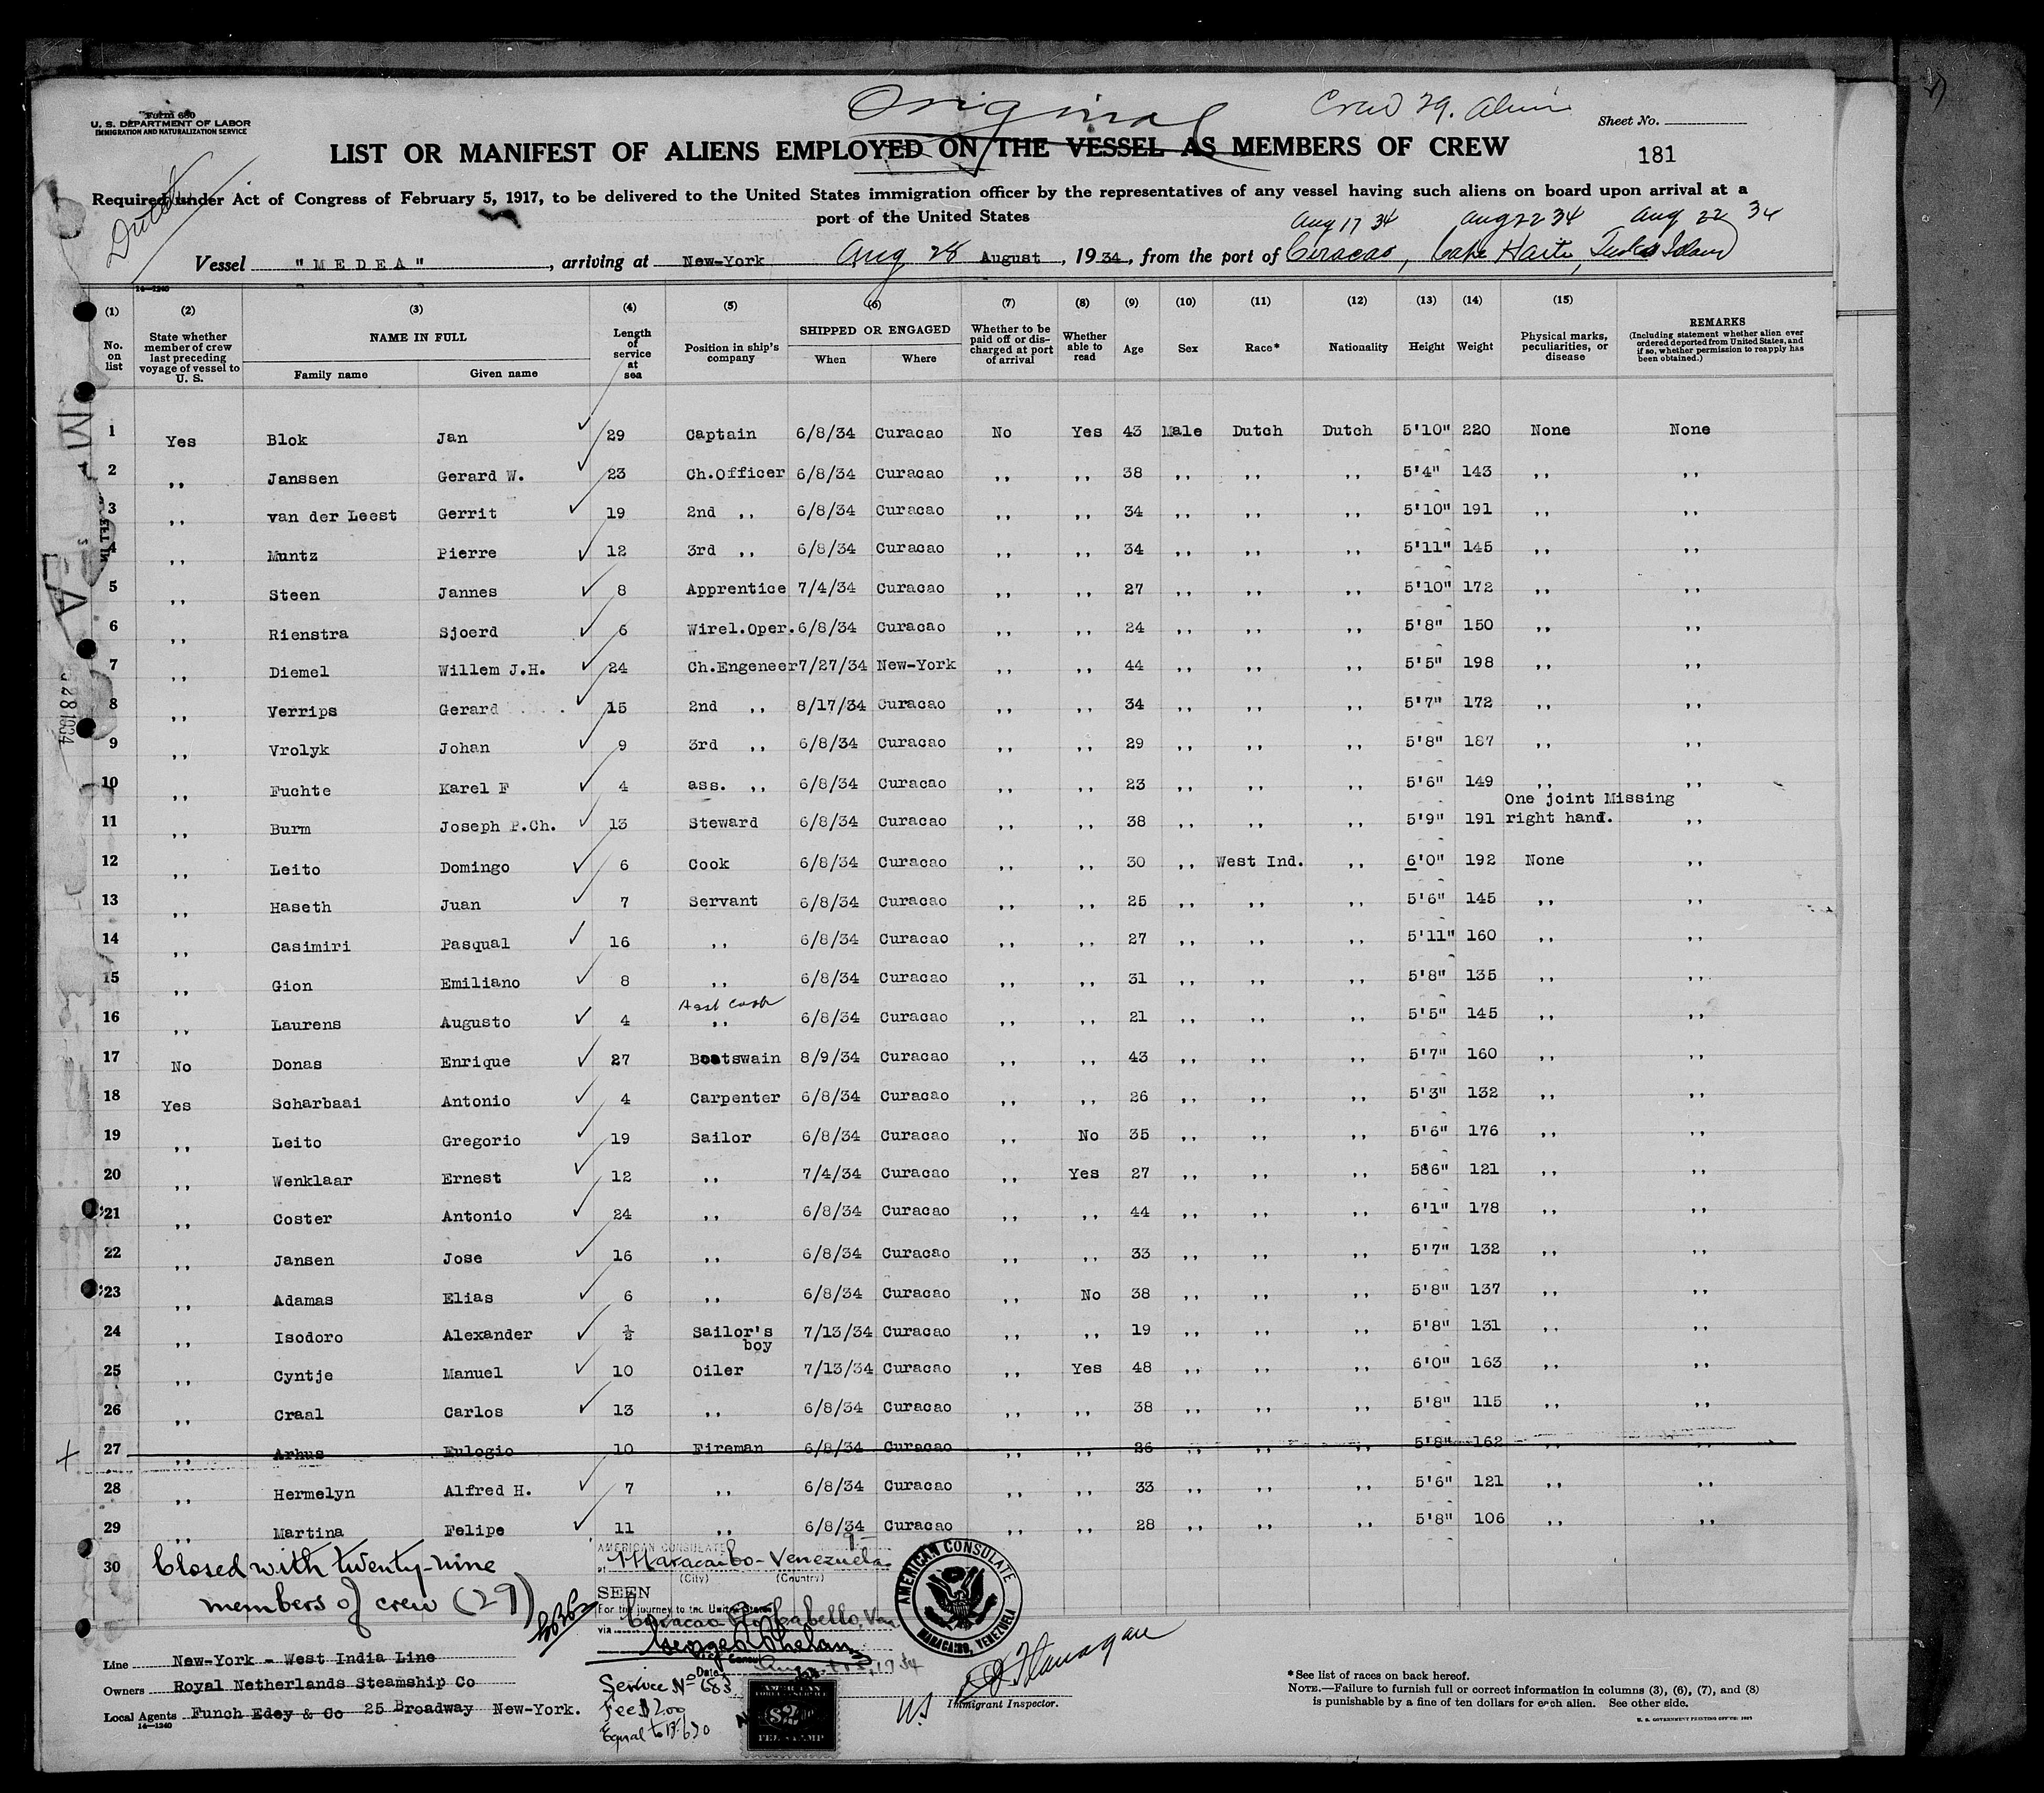 Form 680
U. S. DEPARTMENT OF LABOR
IMMIGRATION AND NATURALIZATION SERVICE
Original
Crew 29. Alien
Sheet No.
181
LIST OR MANIFEST OF ALIENS EMPLOYED ON THE VESSEL AS MEMBERS OF CREW
Dutch
Required under Act of Congress of February 5, 1917, to be delivered to the United States immigration officer by the representatives of any vessel having such aliens on board upon arrival at a
port of the United States
Aug 17 34 Aug 22 34 Aug 22 34
Vessel "MEDEA", arriving at New-York Aug 28 August, 1934, from the port of Curacao, Cape Haiti, Turks Island
14-1240
(1) (2) (3) (4) (5) (6) (7) (8) (9) (10) (11) (12) (13) (14) (15)
No. on list
State whether member of crew last preceding voyage of vessel to U. S.
NAME IN FULL
Family name Given name
Length of service at sea
Position in ship's company
SHIPPED OR ENGAGED
When Where
Whether to be paid off or discharged at port of arrival
Whether able to read
Age Sex Race* Nationality Height Weight
Physical marks, peculiarities, or disease
REMARKS
(Including statement whether alien ever ordered deported from United States, and if so, whether permission to reapply has been obtained.)
1 Yes Blok Jan 29 Captain 6/8/34 Curacao No Yes 43 Male Dutch Dutch 5'10" 220 None None
2 ,, Janssen Gerard W. 23 Ch.Officer 6/8/34 Curacao ,, ,, 38 ,, ,, ,, 5'4" 143 ,, ,,
3 ,, van der Leest Gerrit 19 2nd ,, 6/8/34 Curacao ,, ,, 34 ,, ,, ,, 5'10" 191 ,, ,,
4 ,, Muntz Pierre 12 3rd ,, 6/8/34 Curacao ,, ,, 34 ,, ,, ,, 5'11" 145 ,, ,,
5 ,, Steen Jannes 8 Apprentice 7/4/34 Curacao ,, ,, 27 ,, ,, ,, 5'10" 172 ,, ,,
6 ,, Rienstra Sjoerd 6 Wirel.Oper. 6/8/34 Curacao ,, ,, 24 ,, ,, ,, 5'8" 150 ,, ,,
7 ,, Diemel Willem J.H. 24 Ch.Engeneer 7/27/34 New-York ,, ,, 44 ,, ,, ,, 5'5" 198 ,, ,,
8 ,, Verrips Gerard 15 2nd ,, 8/17/34 Curacao ,, ,, 34 ,, ,, ,, 5'7" 172 ,, ,,
9 ,, Vrolyk Johan 9 3rd ,, 6/8/34 Curacao ,, ,, 29 ,, ,, ,, 5'8" 187 ,, ,,
10 ,, Fuchte Karel F 4 ass. ,, 6/8/34 Curacao ,, ,, 23 ,, ,, ,, 5'6" 149 ,, ,,
11 ,, Burm Joseph P.Ch. 13 Steward 6/8/34 Curacao ,, ,, 38 ,, ,, ,, 5'9" 191 One joint Missing right hand. ,,
12 ,, Leito Domingo 6 Cook 6/8/34 Curacao ,, ,, 30 ,, West Ind. ,, 6'0" 192 None ,,
13 ,, Haseth Juan 7 Servant 6/8/34 Curacao ,, ,, 25 ,, ,, ,, 5'6" 145 ,, ,,
14 ,, Casimiri Pasqual 16 ,, 6/8/34 Curacao ,, ,, 27 ,, ,, ,, 5'11" 160 ,, ,,
15 ,, Gion Emiliano 8 ,, 6/8/34 Curacao ,, ,, 31 ,, ,, ,, 5'8" 135 ,, ,,
16 ,, Laurens Augusto 4 Asst Cook ,, 6/8/34 Curacao ,, ,, 21 ,, ,, ,, 5'5" 145 ,, ,,
17 No Donas Enrique 27 Boatswain 8/9/34 Curacao ,, ,, 43 ,, ,, ,, 5'7" 160 ,, ,,
18 Yes Scharbaai Antonio 4 Carpenter 6/8/34 Curacao ,, ,, 26 ,, ,, ,, 5'3" 132 ,, ,,
19 ,, Leito Gregorio 19 Sailor 6/8/34 Curacao ,, No 35 ,, ,, ,, 5'6" 176 ,, ,,
20 ,, Wenklaar Ernest 12 ,, 7/4/34 Curacao ,, Yes 27 ,, ,, ,, 586" 121 ,, ,,
21 ,, Coster Antonio 24 ,, 6/8/34 Curacao ,, ,, 44 ,, ,, ,, 6'1" 178 ,, ,,
22 ,, Jansen Jose 16 ,, 6/8/34 Curacao ,, ,, 33 ,, ,, ,, 5'7" 132 ,, ,,
23 ,, Adamas Elias 6 ,, 6/8/34 Curacao ,, No 38 ,, ,, ,, 5'8" 137 ,, ,,
24 ,, Isodoro Alexander ½ Sailor's boy 7/13/34 Curacao ,, ,, 19 ,, ,, ,, 5'8" 131 ,, ,,
25 ,, Cyntje Manuel 10 Oiler 7/13/34 Curacao ,, Yes 48 ,, ,, ,, 6'0" 163 ,, ,,
26 ,, Craal Carlos 13 ,, 6/8/34 Curacao ,, ,, 38 ,, ,, ,, 5'8" 115 ,, ,,
27 ,, Arhus Eulogio 10 Fireman 6/8/34 Curacao ,, ,, 26 ,, ,, ,, 5'8" 162 ,, ,,
28 ,, Hermelyn Alfred H. 7 ,, 6/8/34 Curacao ,, ,, 33 ,, ,, ,, 5'6" 121 ,, ,,
29 ,, Martina Felipe 11 ,, 6/8/34 Curacao ,, ,, 28 ,, ,, ,, 5'8" 106 ,, ,,
30 Closed with twenty-nine
members of crew (29)
AMERICAN CONSULATE
at Maracaibo - Venezuela
(City) (Country)
SEEN
For the journey to the United States
via Curacao Pto Cabello, Ven
George Phelan
Vice Consul
Date
Service Nº 683
Fee $2.00
AMERICAN CONSULATE
MARACAIBO, VENEZUELA
Flanagan
Immigrant Inspector.
Line New-York - West India Line
Owners Royal Netherlands Steamship Co
Local Agents Funch Edey & Co 25 Broadway New-York.
14-1240
*See list of races on back hereof.
NOTE.—Failure to furnish full or correct information in columns (3), (6), (7), and (8)
is punishable by a fine of ten dollars for each alien. See other side.